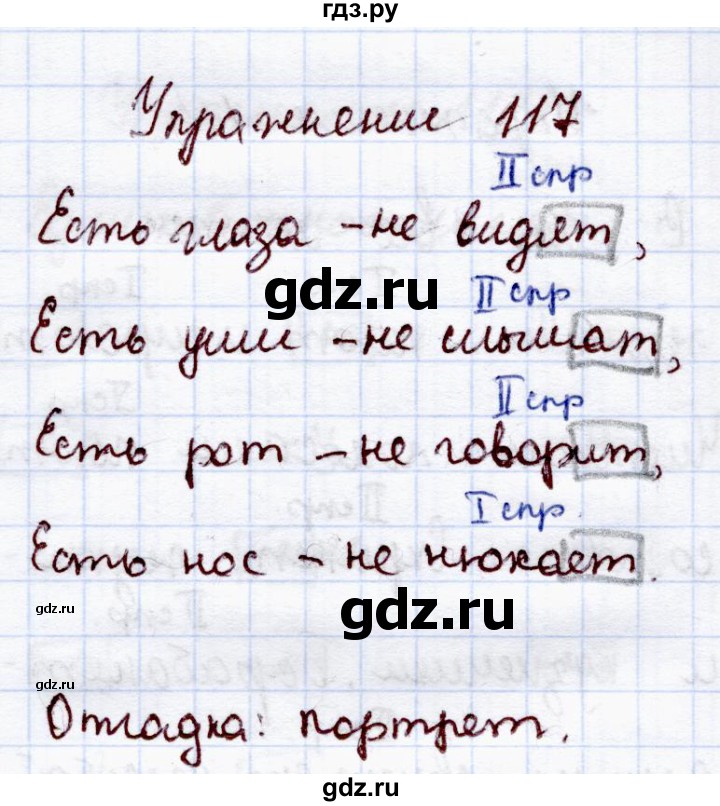 гдз.ру
Упражнение 117
II спр
Есть глаза – не видят,
gdz.ru
II спр
Есть уши – не слышат,
II спр
Есть рот – не говорит,
I спр.
Есть нос – не нюхает.
gdz.ru
gdz.ru
gdz.ru
Отгадка: портрет.
gdz.ru